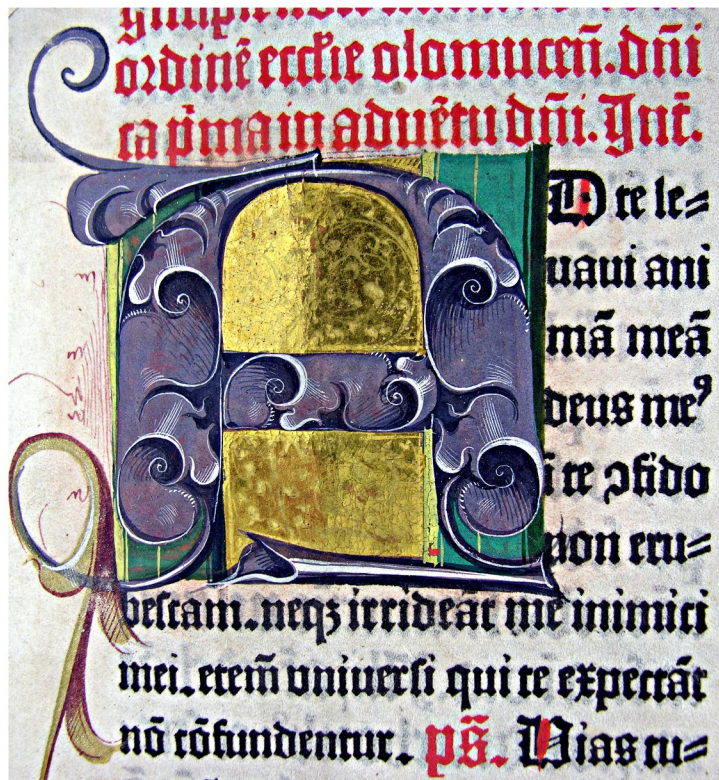 ordinē ecclie olomuceñ. dñi
ca p̄ma in aduētu dñi. Int̄.
AD te le=
uaui ani
mā meā
deus meꝰ
ī te ↄfido
non eru=
bescam. neqꝫ irrideāt me inimici
mei. etem̄ vniuersi qui te expectāt
nō cōfundentur. ps̄. Vias tu=